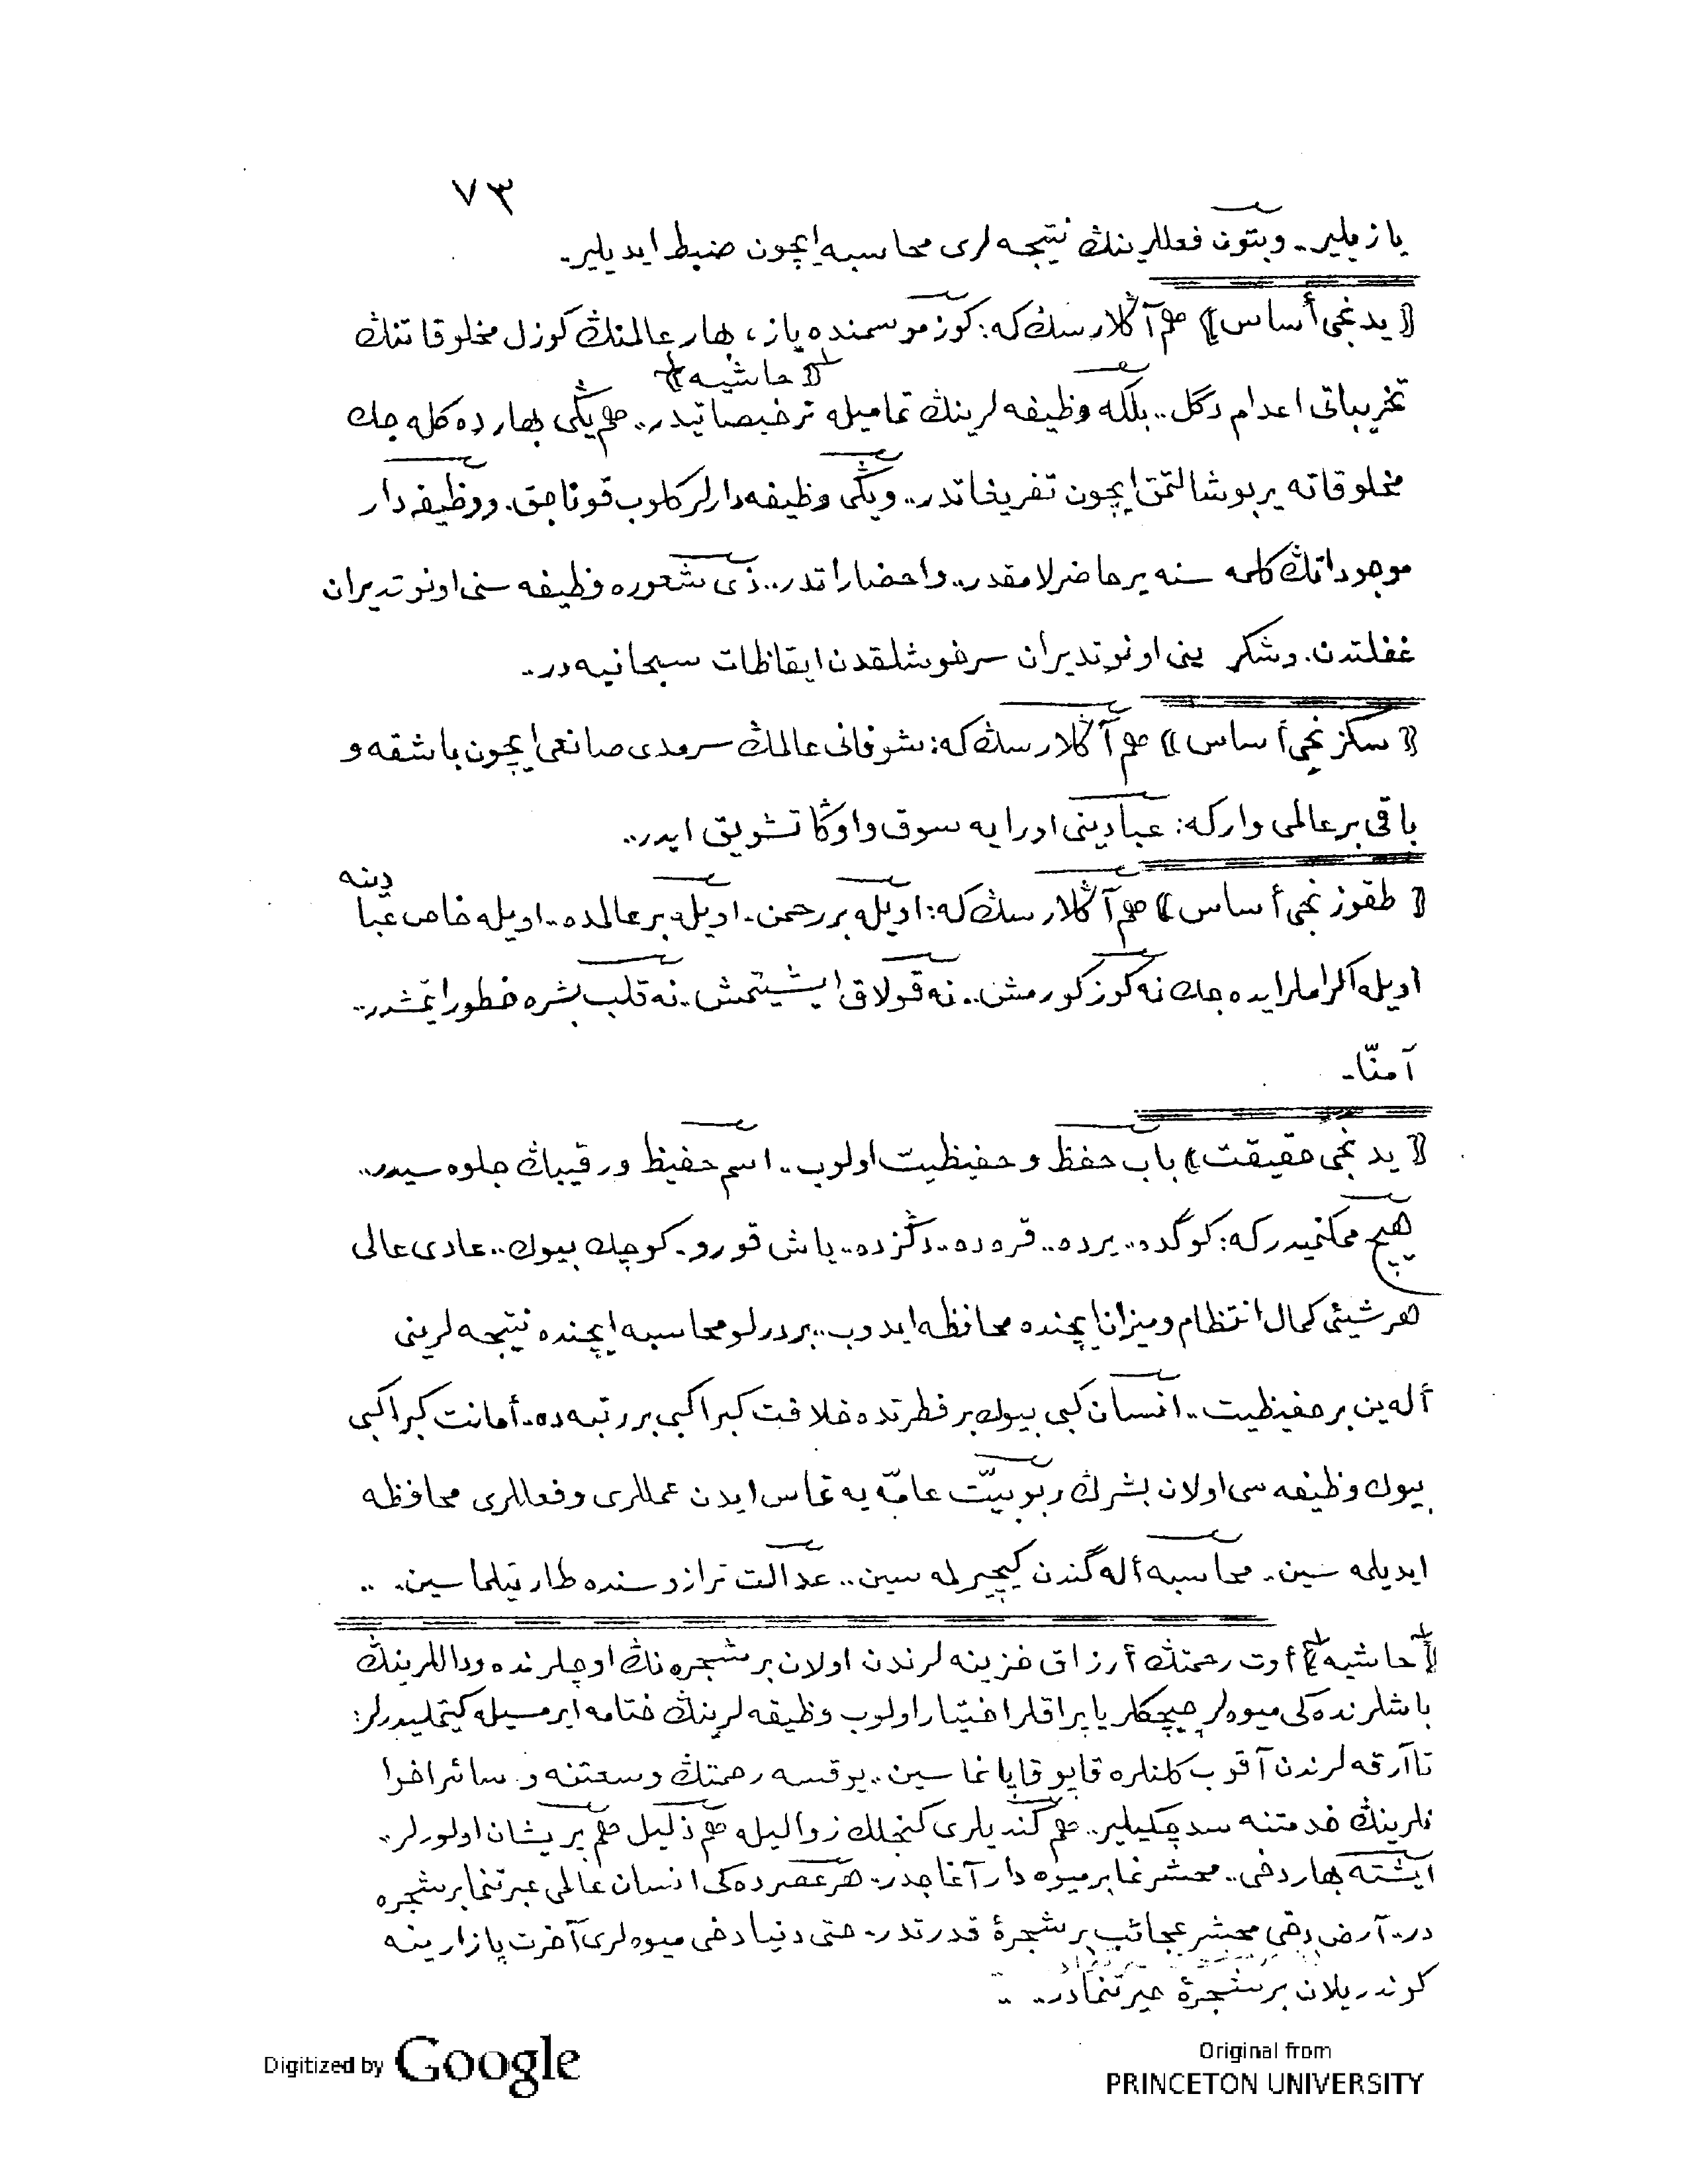 ٧٣
يازيلير.. وبتون فعللرينڭ نتيجه لرى محاسبه ايچون ضبط ايديلير.
﴿ يدنجى أساس ﴾ هم آڭلارسڭ كه: كوز موسمنده ياز، بهار عالمنڭ كوزل مخلوقاتنڭ
﴿ حاشيه ﴾
تخريباتى اعدام دگل.. بلكه وظيفه لرينڭ تماميله ترخيصاتيدر.. هم يڭى بهارده كله جك
مخلوقاته ير بوشالتمق ايچون تفريغاتدر.. ويڭى وظيفه دارلر كلوب قوناجق. ووظيفه دار
موجوداتڭ كلمه سنه ير حاضرلامقدر.. واحضاراتدر.. ذى شعوره وظيفه سنى اونوتديران
غفلتدن. وشكرينى اونوتديران سرخوشلقدن ايقاظات سبحانيه در..
﴿ سكزنجى أساس ﴾ هم آڭلارسڭ كه: شو فانى عالمڭ سرمدى صانعى ايچون باشقه و
باقى بر عالمى واركه: عباديني اورايه سوق واوڭا تشويق ايدر..
﴿ طقوزنجى أساس ﴾ هم آڭلارسڭ كه: اويله بر رحمن. اويله بر عالمده.. اويله خاص عبادينه
اويله اكراملر ايده جك نه كوز كورمش.. نه قولاق ايشيتمش.. نه قلب بشره خطور ايتمشدر..
آمنّا.
﴿ يدنجى حقيقت ﴾ باب حفظ و حفيظيت اولوب.. اسم حفيظ و رقيبڭ جلوه سيدر..
هيچ ممكنميدركه: كوگده.. يرده.. قره ده.. دڭزده.. ياش قورو. كوچك بيوك.. عادى عالى
هر شيئى كمال انتظام وميزان ايچنده محافظه ايدوب.. بر درلو محاسبه ايچنده نتيجه لرينى
أله ين بر حفيظيت.. انسان كبى بيوك بر فطرتده خلافت كبرا كبى بر رتبه ده. أمانت كبرا كبى
بيوك وظيفه سى اولان بشرڭ ربوبيّت عامّه يه تماس ايدن عمللرى وفعللرى محافظه
ايديلمه سين. محاسبه أله گندن كيچيرلمه سين.. عدالت ترازوسنده طارتيلماسين. ..
﴿ حاشيه ﴾ أوت رحمتڭ أرزاق خزينه لرندن اولان بر شجره نڭ اوچلرنده وداللرينڭ
باشلرنده كى ميوه لر چيچكلر ياپراقلر اختيار اولوب وظيفه لرينڭ ختامه ايرمسيله كيتمليدرلر:
تا آرقه لرندن آقوب كلنلره قاپو قاپانماسين.. يوقسه رحمتڭ وسعتنه و سائر اخوا
نلرينڭ خدمتنه سد چكيلير.. هم كنديلرى كنجلك زواليله هم ذليل هم پريشان اولورلر..
ايشته بهار دخى.. محشرنما بر ميوه دار آغاجدر. هر عصرده كى انسان عالمى عبرتنما بر شجره
در.. آرض دخى محشر عجائب بر شجرۀ قدرتدر. حتى دنيا دخى ميوه لرى آخرت پازارينه
كوندريلان بر شجرۀ حيرتنمادر.. ..
Digitized by Google
Original from
PRINCETON UNIVERSITY